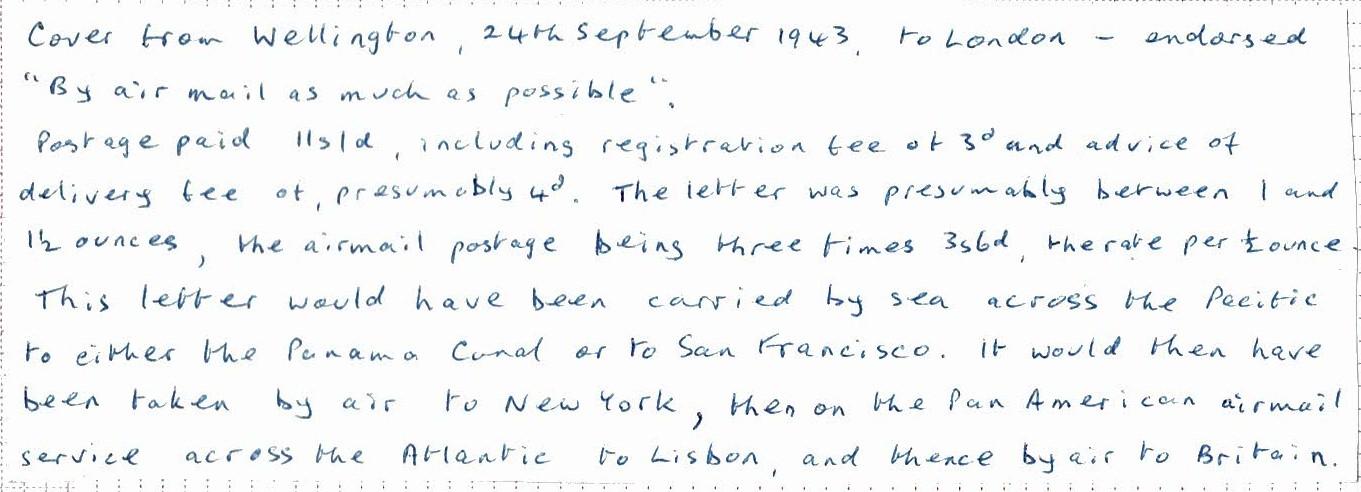 Cover from Wellington, 24th September 1943, to London - endorsed
"By air mail as much as possible".
Postage paid 11s1d, including registration fee of 3d and advice of
delivery fee of, presumably 4d. The letter was presumably between 1 and
1½ ounces, the airmail postage being three times 3s6d, the rate per ½ ounce
This letter would have been carried by sea across the Pacific
to either the Panama Canal or to San Francisco. It would then have
been taken by air to New York, then on the Pan American airmail
service across the Atlantic to Lisbon, and thence by air to Britain.